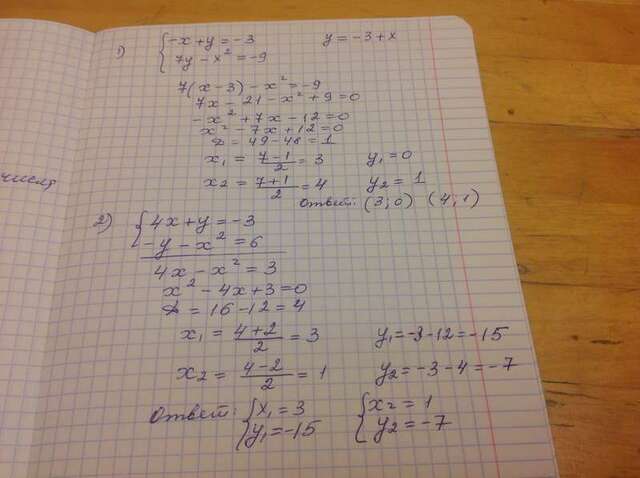 числя
1) { -x + y = -3 y = -3 + x
7y - x² = -9
7(x - 3) - x² = -9
7x - 21 - x² + 9 = 0
-x² + 7x - 12 = 0
x² - 7x + 12 = 0
D = 49 - 48 = 1
x₁ = (7-1)/2 = 3 y₁ = 0
x₂ = (7+1)/2 = 4 y₂ = 1
Ответ: (3; 0) (4; 1)
2) { 4x + y = -3
-y - x² = 6
4x - x² = 3
x² - 4x + 3 = 0
D = 16 - 12 = 4
x₁ = (4+2)/2 = 3 y₁ = -3 - 12 = -15
x₂ = (4-2)/2 = 1 y₂ = -3 - 4 = -7
Ответ: { x₁ = 3 { x₂ = 1
y₁ = -15 y₂ = -7